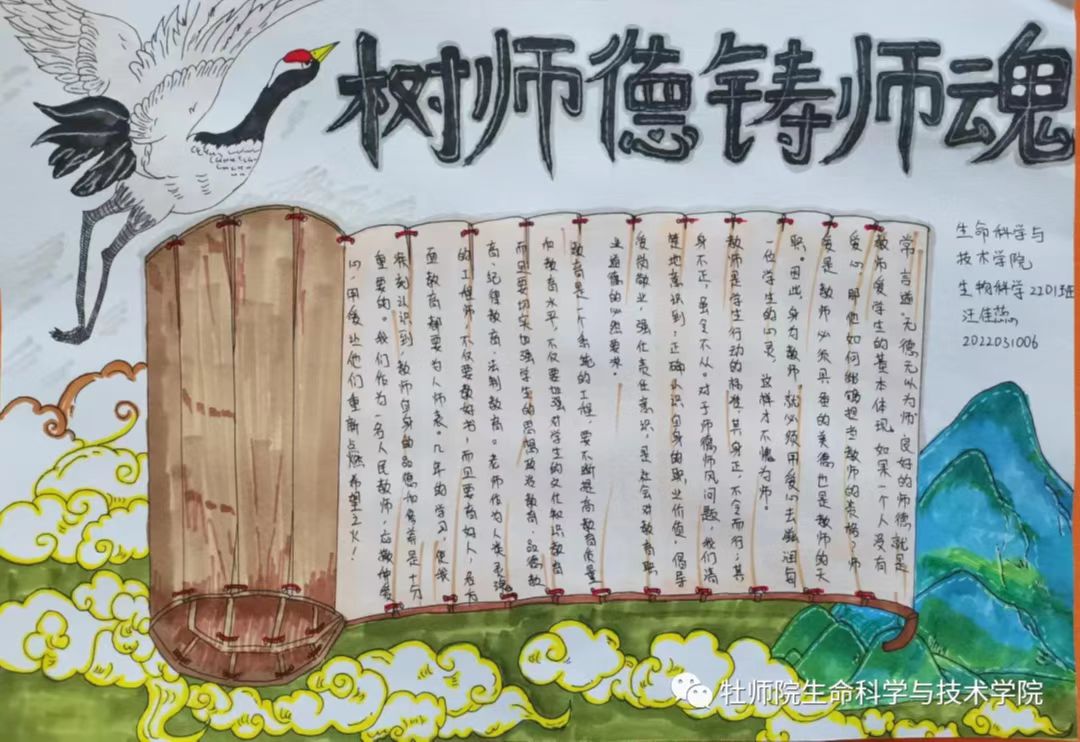 树师德铸师魂
常言道：无德无以为师，良好的师德就是
教师爱学生的基本体现。如果一个人没有
爱心，那他如何能够担当教师的责格，师
爱是教师必须具备的美德也是教师的天
职。因此，身为教师，就必须用爱心去滋润每
一位学生的心灵，这样才不愧为师。
教师是学生行动的榜准，其身正，不令而行；其
身不正，虽令不从。对于师德师风问题，我们清
楚地意识到：正确认识自身的职业价值，倡导
爱岗敬业，强化责任意识，是社会对教育职
业道德的必然要求。
教育是一个系统的工程，要不断提高教育质量
和教育水平，不仅要加强对学生的文化知识教育
而且要切实加强学生的思想政治教育，品德教
育，纪律教育，法制教育。老师作为人类灵魂
的工程师，不仅要教好书，而且要育好人，各方
面教育都要为人师表。几年的学习，使我
深刻认识到，教师自身的品德和素养是十分
重要的。我们作为一名人民教师，应敞伸爱
心，用爱让他们重新点燃希望之火！
生命科学与
技术学院
生物科学2201班
汪佳蕊
2022031006
牡师院生命科学与技术学院